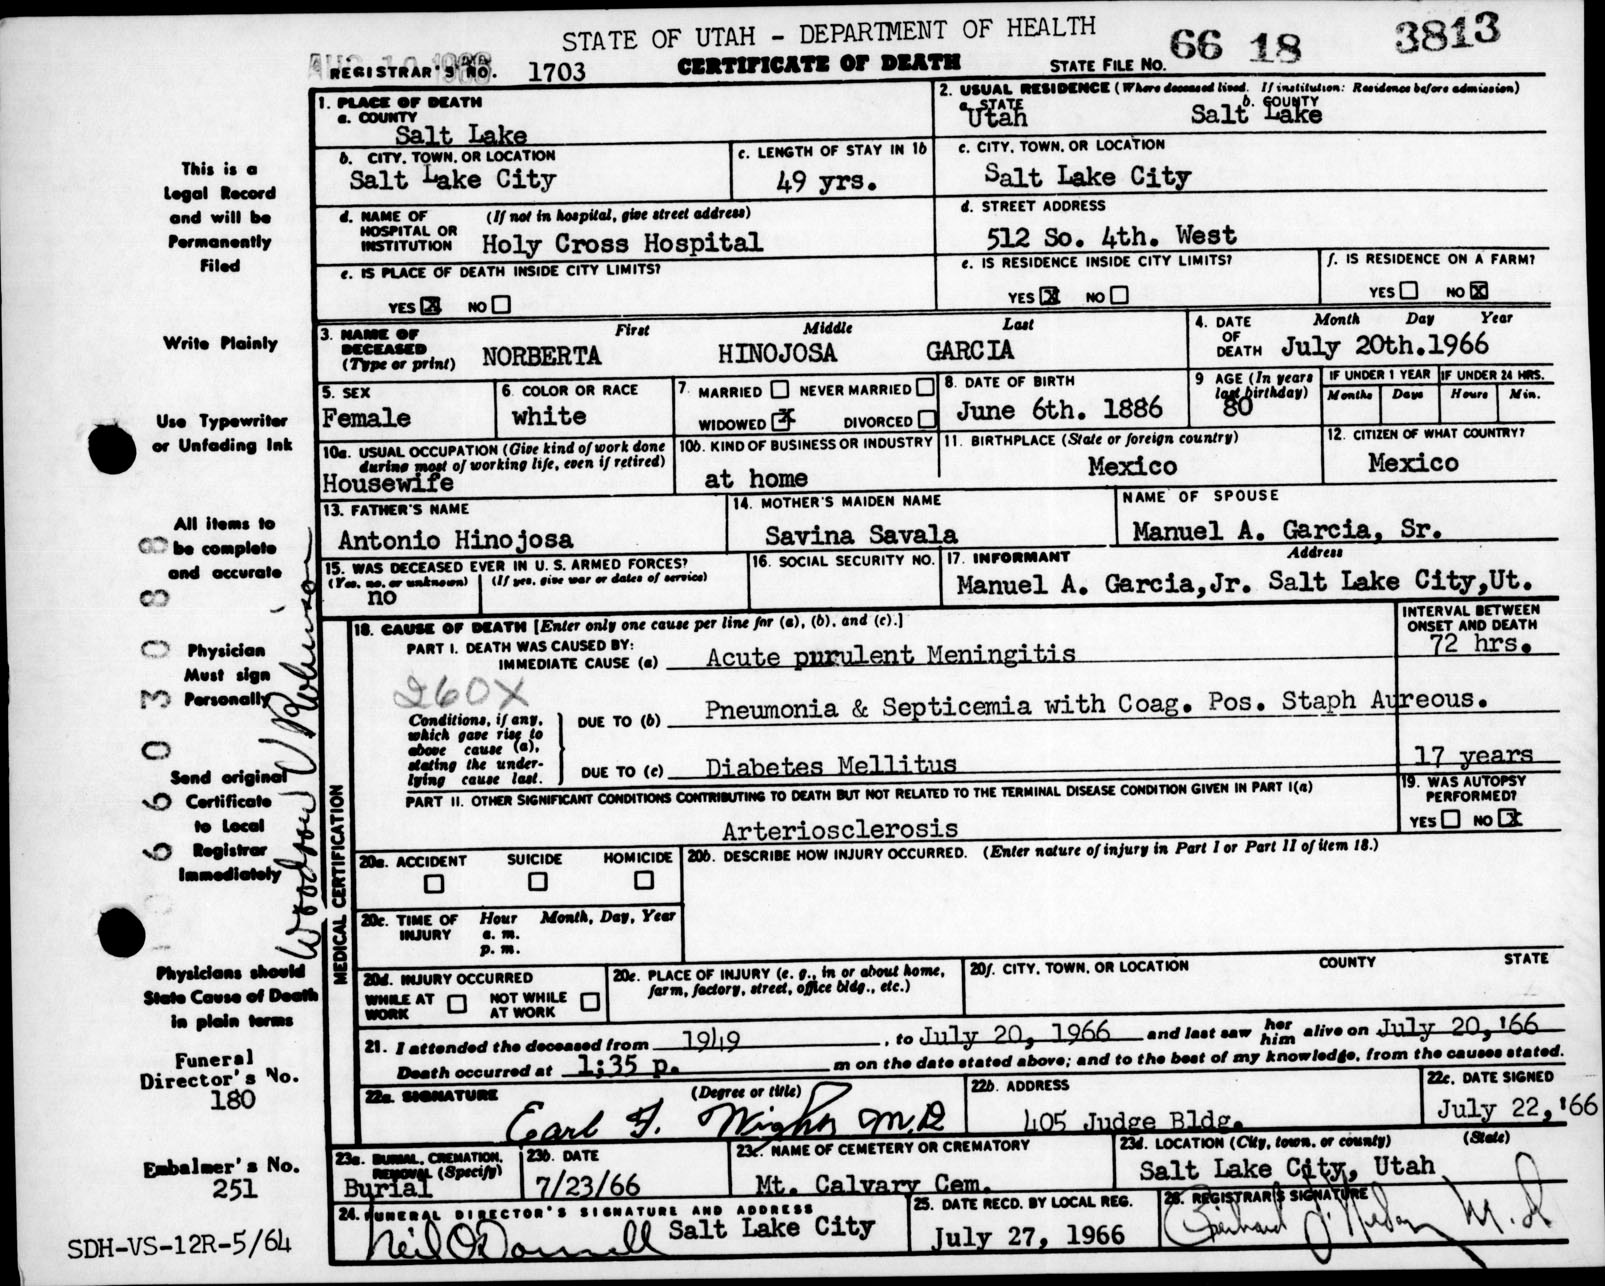 STATE OF UTAH - DEPARTMENT OF HEALTH
CERTIFICATE OF DEATH
REGISTRAR'S NO. 1703
STATE FILE NO. 66 18 3813
1. PLACE OF DEATH
a. COUNTY
Salt Lake
2. USUAL RESIDENCE (Where deceased lived. If institution: Residence before admission)
a. STATE
Utah
b. COUNTY
Salt Lake
b. CITY, TOWN, OR LOCATION
Salt Lake City
c. LENGTH OF STAY IN 1b
49 yrs.
c. CITY, TOWN, OR LOCATION
Salt Lake City
d. NAME OF HOSPITAL OR INSTITUTION
(If not in hospital, give street address)
Holy Cross Hospital
d. STREET ADDRESS
512 So. 4th. West
e. IS PLACE OF DEATH INSIDE CITY LIMITS?
YES X NO
e. IS RESIDENCE INSIDE CITY LIMITS?
YES X NO
f. IS RESIDENCE ON A FARM?
YES NO X
3. NAME OF DECEASED (Type or print)
First Middle Last
NORBERTA HINOJOSA GARCIA
4. DATE OF DEATH
Month Day Year
July 20th.1966
5. SEX
Female
6. COLOR OR RACE
white
7. MARRIED NEVER MARRIED
WIDOWED X DIVORCED
8. DATE OF BIRTH
June 6th. 1886
9 AGE (In years last birthday)
80
IF UNDER 1 YEAR
Months Days
IF UNDER 24 HRS.
Hours Min.
10a. USUAL OCCUPATION (Give kind of work done during most of working life, even if retired)
Housewife
10b. KIND OF BUSINESS OR INDUSTRY
at home
11. BIRTHPLACE (State or foreign country)
Mexico
12. CITIZEN OF WHAT COUNTRY?
Mexico
13. FATHER'S NAME
Antonio Hinojosa
14. MOTHER'S MAIDEN NAME
Savina Savala
NAME OF SPOUSE
Manuel A. Garcia, Sr.
15. WAS DECEASED EVER IN U. S. ARMED FORCES?
(Yes, no, or unknown) (If yes, give war or dates of service)
no
16. SOCIAL SECURITY NO.
17. INFORMANT Address
Manuel A. Garcia,Jr. Salt Lake City,Ut.
MEDICAL CERTIFICATION
18. CAUSE OF DEATH [Enter only one cause per line for (a), (b), and (c).]
INTERVAL BETWEEN ONSET AND DEATH
PART I. DEATH WAS CAUSED BY:
IMMEDIATE CAUSE (a) Acute purulent Meningitis
72 hrs.
260X
Conditions, if any, which gave rise to above cause (a), stating the underlying cause last.
DUE TO (b) Pneumonia & Septicemia with Coag. Pos. Staph Aureous.
DUE TO (c) Diabetes Mellitus
17 years
PART II. OTHER SIGNIFICANT CONDITIONS CONTRIBUTING TO DEATH BUT NOT RELATED TO THE TERMINAL DISEASE CONDITION GIVEN IN PART I(a)
Arteriosclerosis
19. WAS AUTOPSY PERFORMED?
YES NO X
20a. ACCIDENT SUICIDE HOMICIDE
20b. DESCRIBE HOW INJURY OCCURRED. (Enter nature of injury in Part I or Part II of item 18.)
20c. TIME OF INJURY
Hour Month, Day, Year
a. m.
p. m.
20d. INJURY OCCURRED
WHILE AT WORK NOT WHILE AT WORK
20e. PLACE OF INJURY (e. g., in or about home, farm, factory, street, office bldg., etc.)
20f. CITY, TOWN, OR LOCATION COUNTY STATE
21. I attended the deceased from 1949, to July 20, 1966 and last saw her him alive on July 20,'66
Death occurred at 1:35 p. m on the date stated above; and to the best of my knowledge, from the causes stated.
22a. SIGNATURE (Degree or title)
Earl F. Wight M.D.
22b. ADDRESS
405 Judge Bldg.
22c. DATE SIGNED
July 22,'66
23a. BURIAL, CREMATION, REMOVAL (Specify)
Burial
23b. DATE
7/23/66
23c. NAME OF CEMETERY OR CREMATORY
Mt. Calvary Cem.
23d. LOCATION (City, town, or county) (State)
Salt Lake City, Utah
24. FUNERAL DIRECTOR'S SIGNATURE AND ADDRESS
Neil O'Donnell Salt Lake City
25. DATE RECD. BY LOCAL REG.
July 27, 1966
26. REGISTRAR'S SIGNATURE
M.D.
This is a
Legal Record
and will be
Permanently
Filed
Write Plainly
Use Typewriter
or Unfading Ink
All items to
be complete
and accurate
Physician
Must sign
Personally
Send original
Certificate
to Local
Registrar
Immediately
Physicians should
State Cause of Death
in plain terms
Funeral
Director's No.
180
Embalmer's No.
251
SDH-VS-12R-5/64